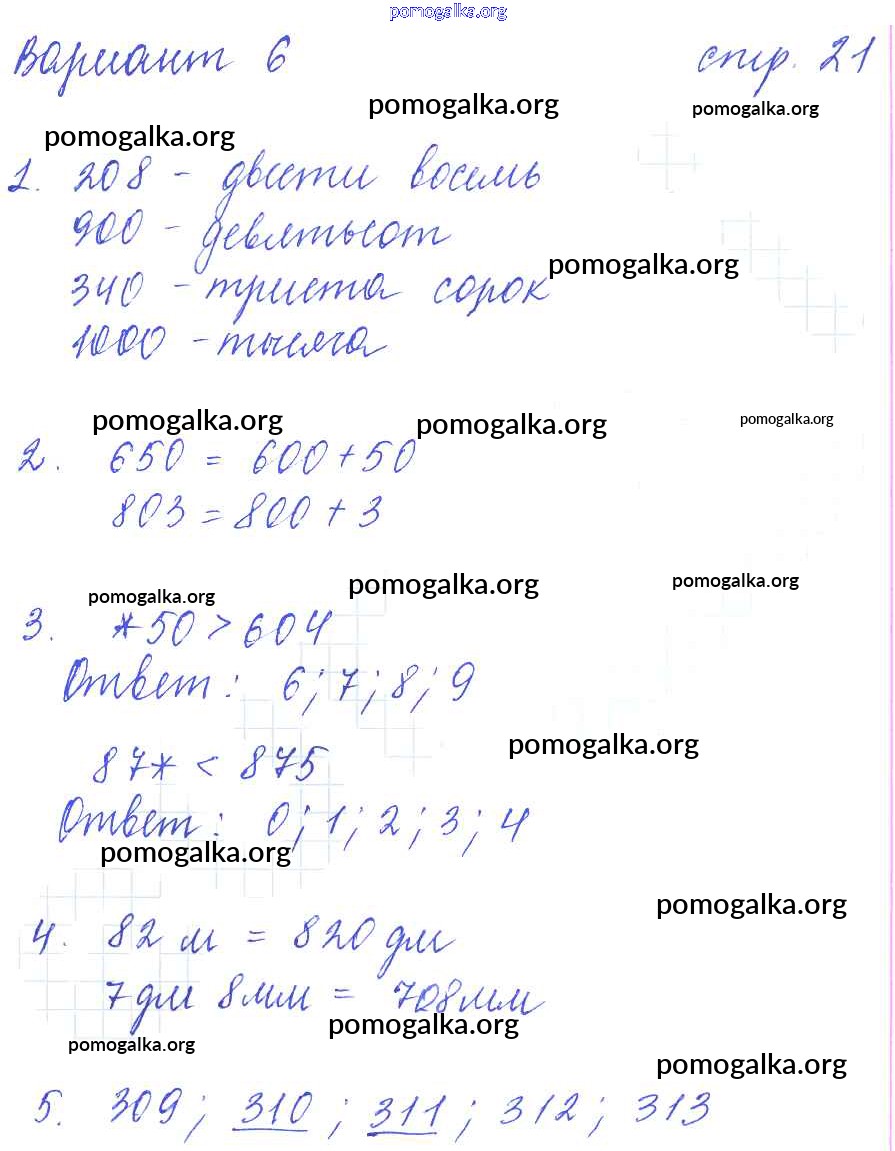 pomogalka.org
Вариант 6 стр. 21
pomogalka.org pomogalka.org
pomogalka.org
1. 208 - двести восемь
900 - девятьсот
pomogalka.org
340 - триста сорок
1000 - тысяча
pomogalka.org pomogalka.org pomogalka.org
2. 650 = 600 + 50
803 = 800 + 3
pomogalka.org pomogalka.org pomogalka.org
3. *50 > 604
Ответ: 6; 7; 8; 9
pomogalka.org
87* < 875
Ответ: 0; 1; 2; 3; 4
pomogalka.org
pomogalka.org
4. 82 м = 820 дм
7 дм 8 мм = 708 мм
pomogalka.org
pomogalka.org
pomogalka.org
5. 309; 310; 311; 312; 313